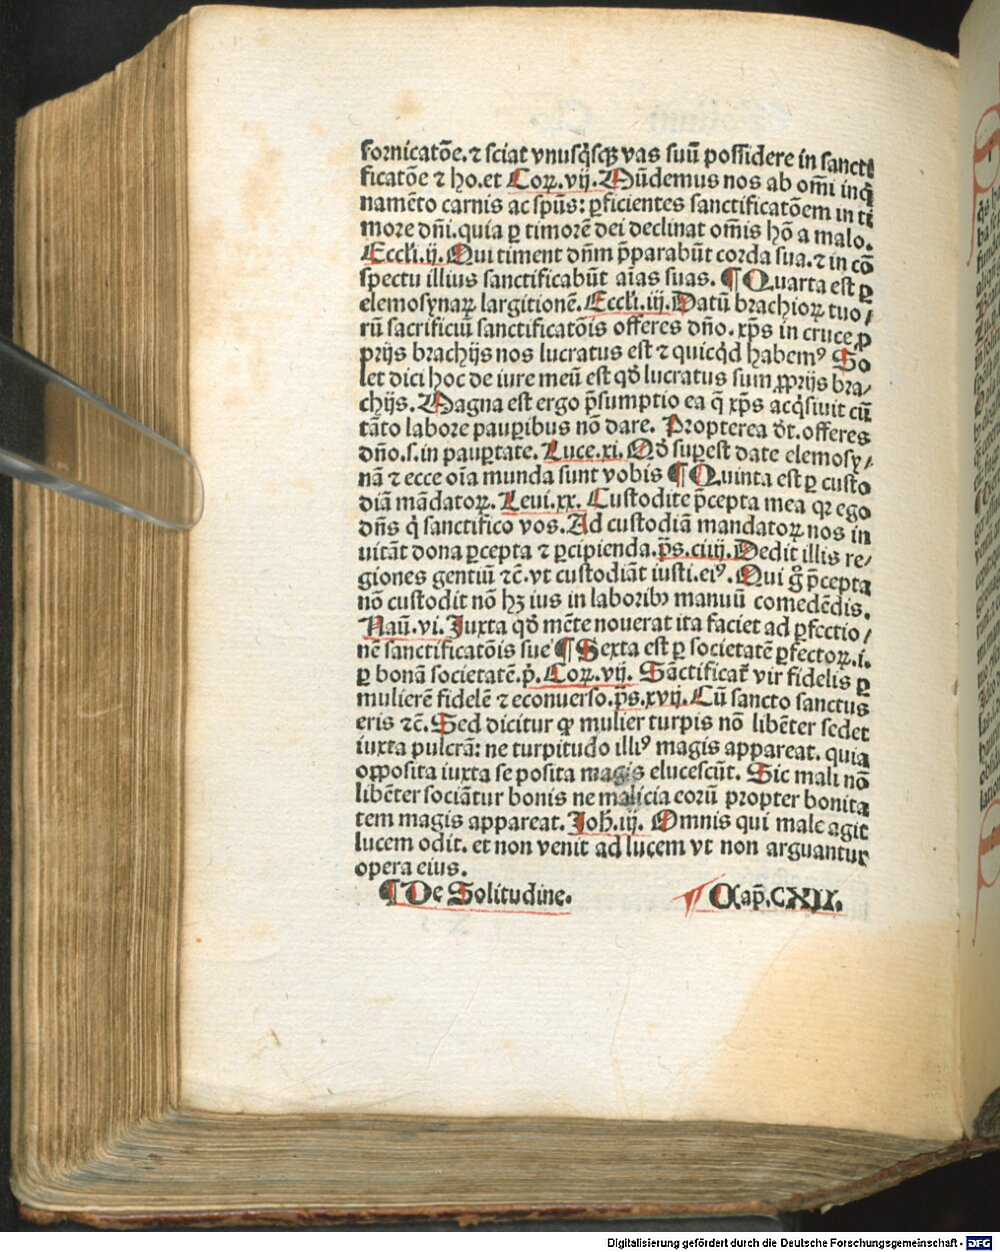 fornicatōe. ⁊ sciat vnusq̇sqꝫ vas suū possidere in sancti
ficatōe ⁊ ho. et Coꝝ. vij. Mūdemus nos ab om̄i inq̇
namēto carnis ac sp̄us: ꝑficientes sanctificatōem in ti
more dn̄i. quia ꝑ timorē dei declinat om̄is hō a malo.
Eccli. ij. Qui timent dn̄m p̄parabūt corda sua. ⁊ in cō
spectu illius sanctificabūt aīas suas. ¶ Quarta est ꝑ
elemosynaꝝ largitionē. Eccli. iij. Datū brachioꝝ tuo/
rū sacrificiū sanctificatōis offeres dn̄o. xp̄s in cruce ꝓ
prijs brachijs nos lucratus est ⁊ quicq̇d habemꝰ So
let dici hoc de iure meū est qd̄ lucratus sum ꝓprijs bra/
chijs. Magna est ergo p̄sumptio ea q̄ xp̄s acq̇siuit cū
tāto labore pauꝑibus nō dare. Propterea dt̄. offeres
dn̄o. s. in pauꝑtate. Luce. xi. Qd̄ suꝑest date elemosy/
nā ⁊ ecce oīa munda sunt vobis ¶ Quinta est ꝑ custo
diā mādatoꝝ. Leui. xx. Custodite p̄cepta mea qꝛ ego
dn̄s q̇ sanctifico vos. Ad custodiā mandatoꝝ nos in
uitāt dona ꝑcepta ⁊ ꝑcipienda. p̄s. ciiij. Dedit illis re/
giones gentiū ⁊c̄. vt custodiāt iusti. eiꝰ. Qui g̊ p̄cepta
nō custodit nō hꝫ ius in laboribꝫ manuū comedēdis.
Naū. vi. Juxta qd̄ mēte nouerat ita faciet ad ꝑfectio/
nē sanctificatōis sue ¶ Sexta est ꝑ societatē ꝑfectoꝝ. i.
ꝑ bonā societatē. p̄. Coꝝ. vij. Sāctificat̄ vir fidelis ꝑ
mulierē fidelē ⁊ econuerso. p̄s. xvij. Cū sancto sanctus
eris ⁊c̄. Sed dicitur ꝙ mulier turpis nō libēter sedet
iuxta pulcrā: ne turpitudo illiꝰ magis appareat. quia
opposita iuxta se posita magis elucescūt. Sic mali nō
libēter sociātur bonis ne malicia eorū propter bonita
tem magis appareat. Joh̄. iij. Omnis qui male agit
lucem odit. et non venit ad lucem vt non arguantur
opera eius.
¶ De Solitudine. Cap̄. CXII.
Digitalisierung gefördert durch die Deutsche Forschungsgemeinschaft - DFG